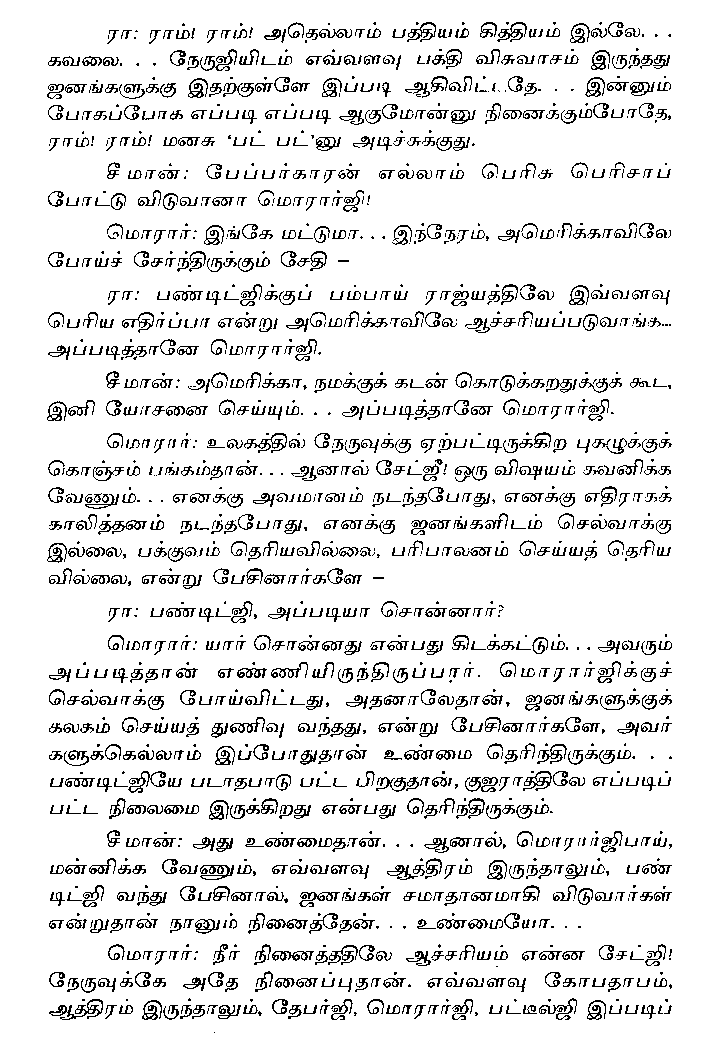 ரா: ராம்! ராம்! அதெல்லாம் பத்தியம் கித்தியம் இல்லே. . .
கவலை. . . நேருஜியிடம் எவ்வளவு பக்தி விசுவாசம் இருந்தது
ஜனங்களுக்கு இதற்குள்ளே இப்படி ஆகிவிட்டதே. . . இன்னும்
போகப்போக எப்படி எப்படி ஆகுமோன்னு நினைக்கும்போதே,
ராம்! ராம்! மனசு ‘பட் பட்’னு அடிச்சுக்குது.
சீமான்: பேப்பர்காரன் எல்லாம் பெரிசு பெரிசாப்
போட்டு விடுவானா மொரார்ஜி!
மொரார்: இங்கே மட்டுமா. . . இந்நேரம், அமெரிக்காவிலே
போய்ச் சேர்ந்திருக்கும் சேதி –
ரா: பண்டிட்ஜிக்குப் பம்பாய் ராஜ்யத்திலே இவ்வளவு
பெரிய எதிர்ப்பா என்று அமெரிக்காவிலே ஆச்சரியப்படுவாங்க...
அப்படித்தானே மொரார்ஜி.
சீமான்: அமெரிக்கா, நமக்குக் கடன் கொடுக்கறதுக்குக் கூட,
இனி யோசனை செய்யும். . . அப்படித்தானே மொரார்ஜி.
மொரார்: உலகத்தில் நேருவுக்கு ஏற்பட்டிருக்கிற புகழுக்குக்
கொஞ்சம் பங்கம்தான். . . ஆனால் சேட்ஜீ! ஒரு விஷயம் கவனிக்க
வேணும். . . எனக்கு அவமானம் நடந்தபோது, எனக்கு எதிராகக்
காலித்தனம் நடந்தபோது, எனக்கு ஜனங்களிடம் செல்வாக்கு
இல்லை, பக்குவம் தெரியவில்லை, பரிபாலனம் செய்யத் தெரிய
வில்லை, என்று பேசினார்களே –
ரா: பண்டிட்ஜி, அப்படியா சொன்னார்?
மொரார்: யார் சொன்னது என்பது கிடக்கட்டும். . . அவரும்
அப்படித்தான் எண்ணியிருந்திருப்பார். மொரார்ஜிக்குச்
செல்வாக்கு போய்விட்டது, அதனாலேதான், ஜனங்களுக்குக்
கலகம் செய்யத் துணிவு வந்தது, என்று பேசினார்களே, அவர்
களுக்கெல்லாம் இப்போதுதான் உண்மை தெரிந்திருக்கும். . .
பண்டிட்ஜியே படாதபாடு பட்ட பிறகுதான், குஜராத்திலே எப்படிப்
பட்ட நிலைமை இருக்கிறது என்பது தெரிந்திருக்கும்.
சீமான்: அது உண்மைதான். . . ஆனால், மொரார்ஜிபாய்,
மன்னிக்க வேணும், எவ்வளவு ஆத்திரம் இருந்தாலும், பண்
டிட்ஜி வந்து பேசினால், ஜனங்கள் சமாதானமாகி விடுவார்கள்
என்றுதான் நானும் நினைத்தேன். . . உண்மையோ. . .
மொரார்: நீர் நினைத்ததிலே ஆச்சரியம் என்ன சேட்ஜி!
நேருவுக்கே அதே நினைப்புதான். எவ்வளவு கோபதாபம்,
ஆத்திரம் இருந்தாலும், தேபர்ஜி, மொரார்ஜி, பட்டீல்ஜி இப்படிப்